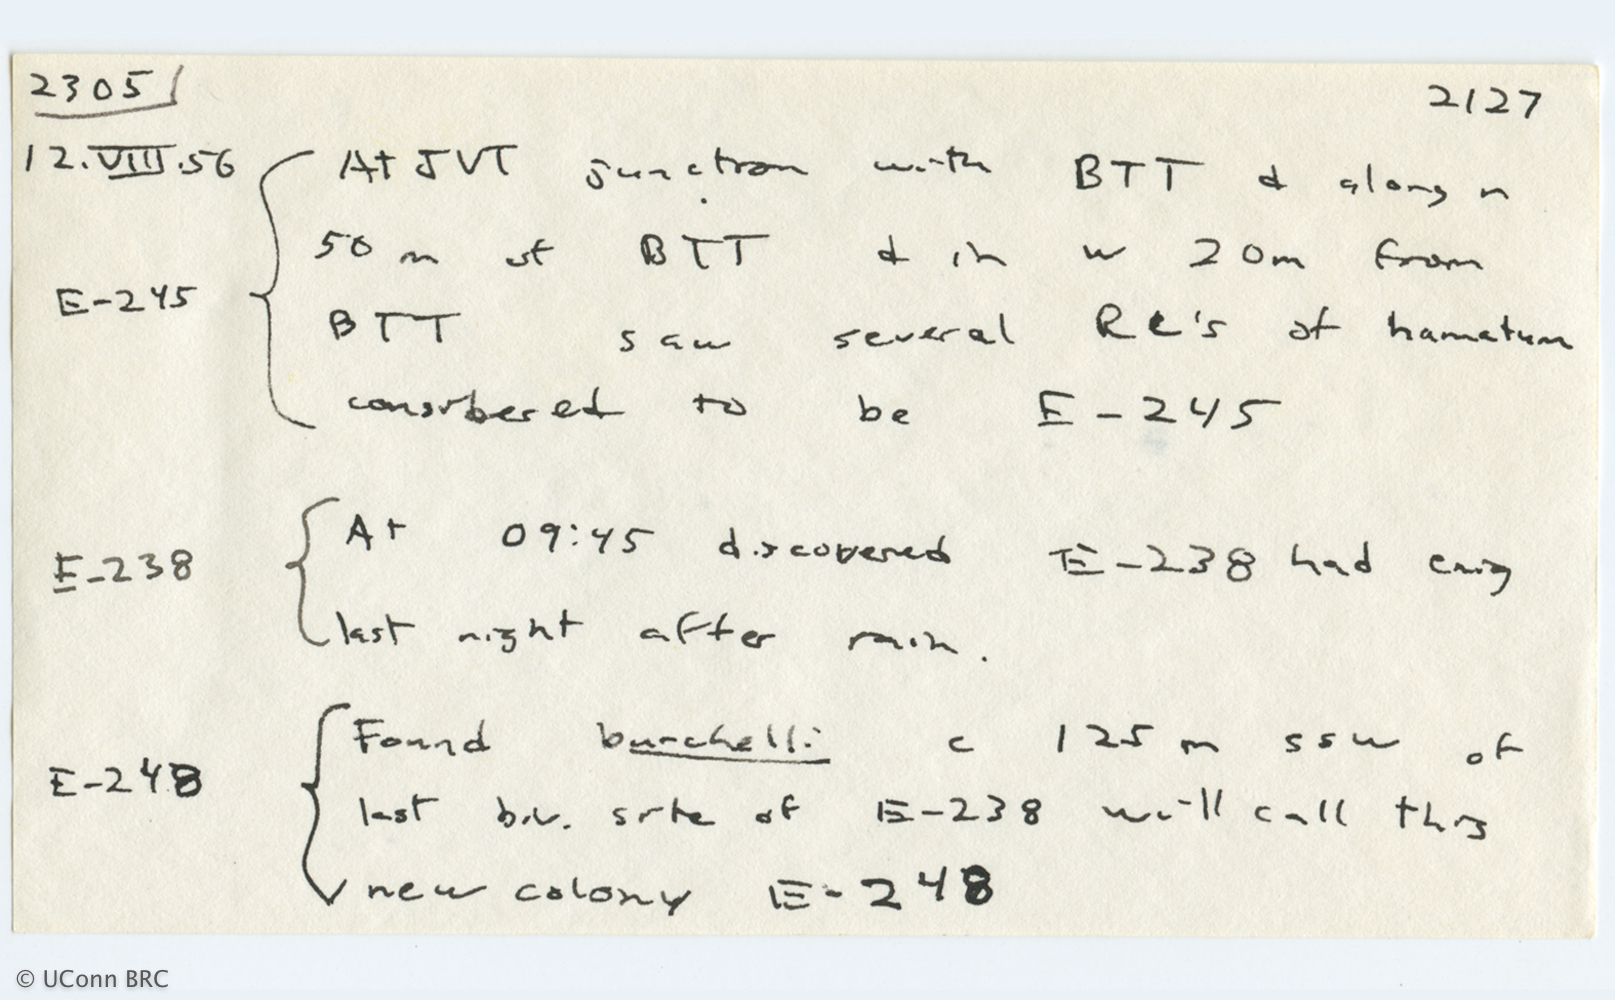 2305 2127
12.VIII.56 At JVT junction with BTT & along n
50 m of BTT & in w 20m from
E-245
BTT saw several RC's of hamatum
considered to be E-245
At 09:45 discovered E-238 had emig
E-238
last night after rain.
Found burchelli c 125 m ssw of
E-248
last biv. site of E-238 will call this
new colony E-248
© UConn BRC